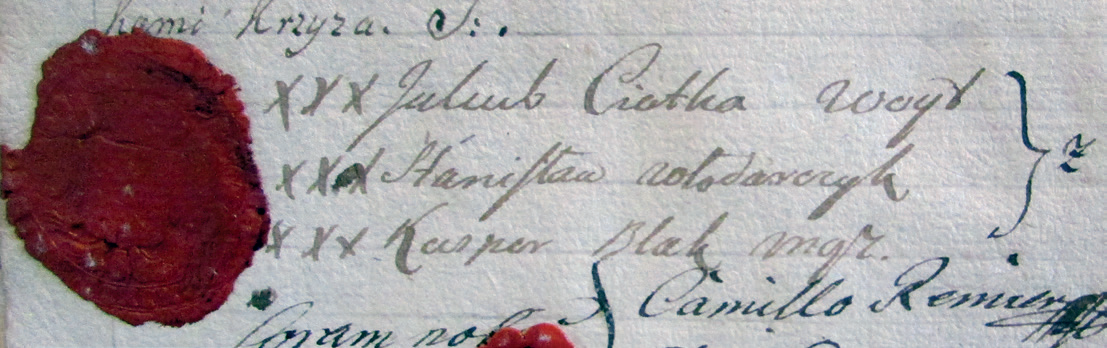 kami Krzyza. S:.
XXX Jakub Ciotka woyt
XXX Stánisław włodarczyk
XXX Kasper Blak mgr.
Coram nob
Camillo